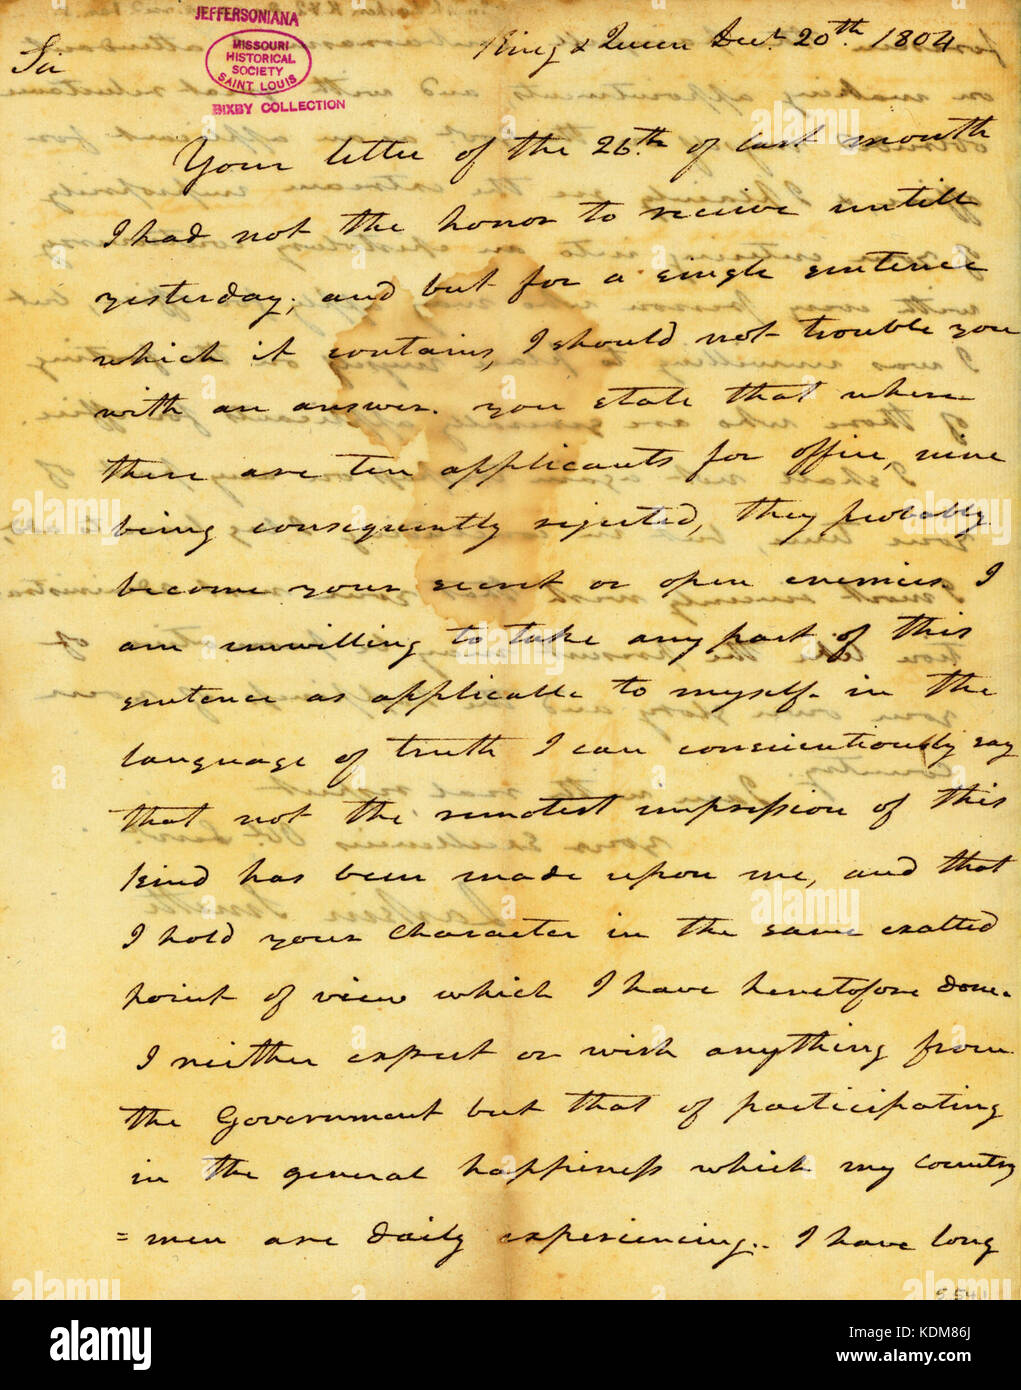 JEFFERSONIANA
MISSOURI
HISTORICAL
SOCIETY
SAINT LOUIS
BIXBY COLLECTION
King & Queen Decr. 20th 1804
Sir
Your letter of the 26th of last month
I had not the honor to receive untill
yesterday; and but for a single sentence
which it contains, I should not trouble you
with an answer. you state that where
there are ten applicants for office, nine
being consequently rejected, they probably
become your secret or open enemies. I
am unwilling to take any part of this
sentence as applicable to myself. in the
language of truth I can conscientiously say
that not the remotest impression of this
kind has been made upon me, and that
I hold your character in the same exalted
point of view which I have heretofore done.
I neither expect or wish anything from
the Government but that of participating
in the general happiness which my country
=men are daily experiencing. I have long
alamy
alamy
Image ID: KDM86J
www.alamy.com